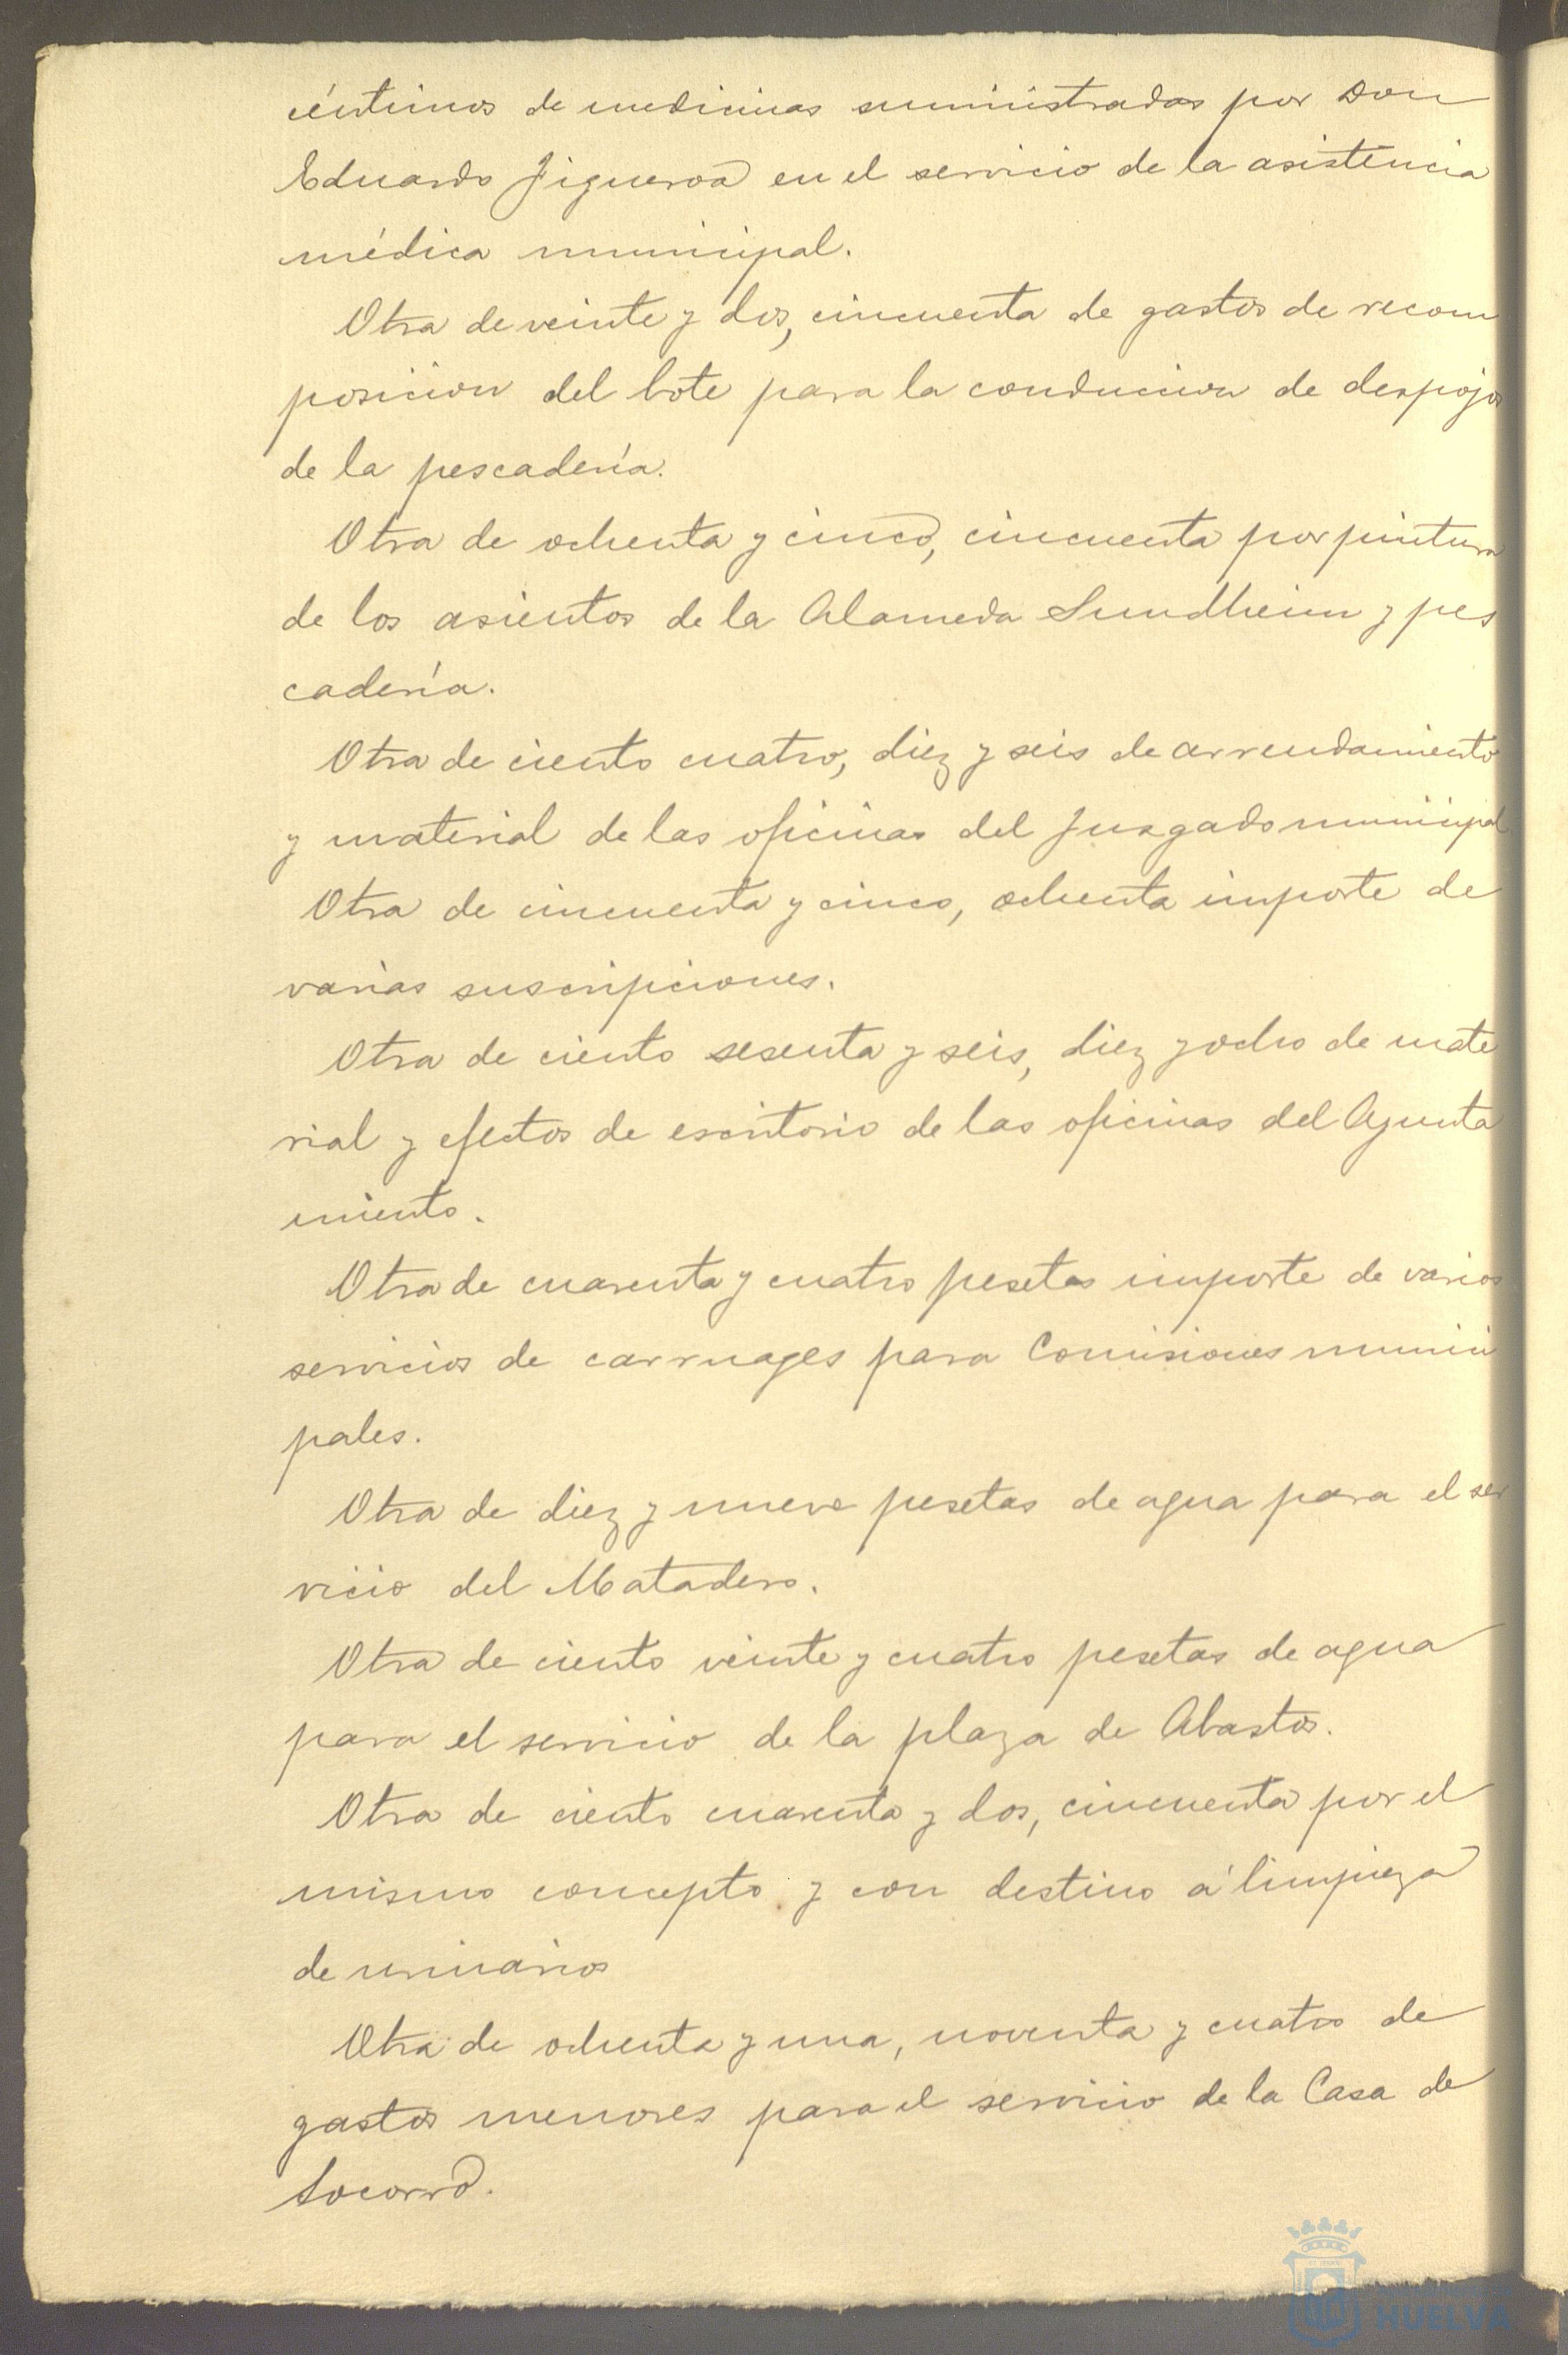 céntimos de medicinas suministradas por Don
Eduardo Figueroa en el servicio de la asistencia
médica municipal.
Otra de veinte y dos, cincuenta de gastos de recom
posicion del bote para la conduccion de despojos
de la pescadería.
Otra de ochenta y cinco, cincuenta por pintura
de los asientos de la Alameda Sundheim y pes
cadería.
Otra de ciento cuatro, diez y seis de arrendamiento
y material de las oficinas del Juzgado municipal
Otra de cincuenta y cinco, ochenta importe de
varias suscripciones.
Otra de ciento sesenta y seis, diez y ocho de mate
rial y efectos de escritorio de las oficinas del Ayunta
miento.
Otra de cuarenta y cuatro pesetas importe de varios
servicios de carruages para Comisiones munici
pales.
Otra de diez y nueve pesetas de agua para el ser
vicio del Matadero.
Otra de ciento veinte y cuatro pesetas de agua
para el servicio de la plaza de Abastos.
Otra de ciento cuarenta y dos, cincuenta por el
mismo concepto y con destino á limpieza
de urinarios
Otra de ochenta y una, noventa y cuatro de
gastos menores para el servicio de la Casa de
Socorro.
HUELVA